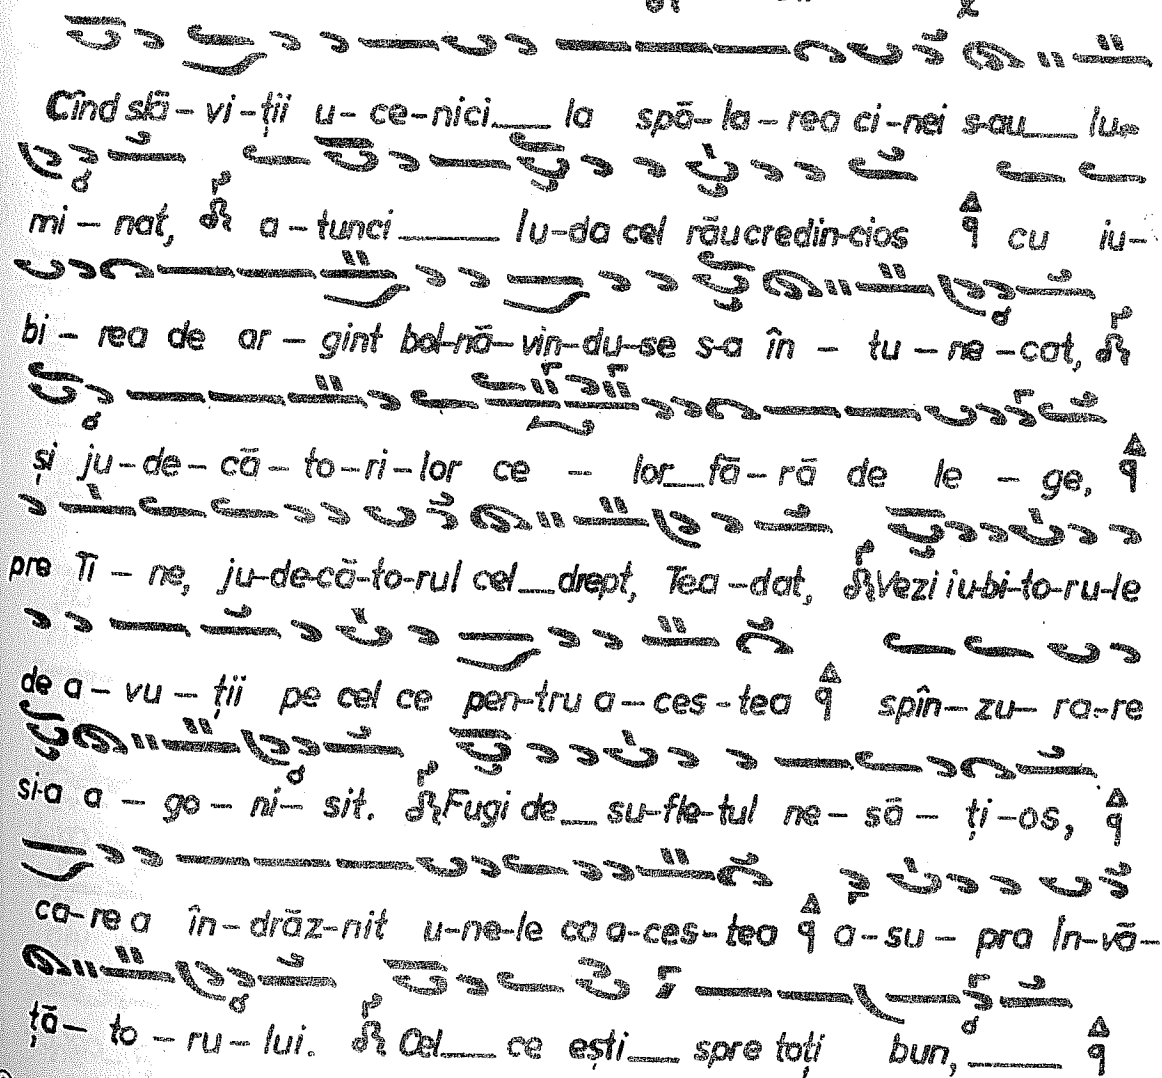 Cînd slă – vi – ții u – ce – nici___ la spă – la – rea ci – nei s-au___ lu –
mi – nat, a – tunci______ Iu – da cel răucredin – cios cu iu –
bi – rea de ar – gint bol – nă – vin – du – se s-a în – tu – ne – cat,
și ju – de – că – to – ri – lor ce – lor___ fă – ră de le – ge,
pre Ti – ne, ju – de – că – to – rul cel___ drept, Tea – dat, Vezi iu – bi – to – ru – le
de a – vu – ții pe cel ce pen – tru a – ces – tea spîn – zu – ra – re
si-a a – go – ni – sit. Fugi de___ su – fle – tul ne – să – ți – os,
ca – re a în – drăz – nit u – ne – le ca a – ces – tea a – su – pra În – vă –
ță – to – ru – lui. Cel___ ce ești___ spre toți bun,_____